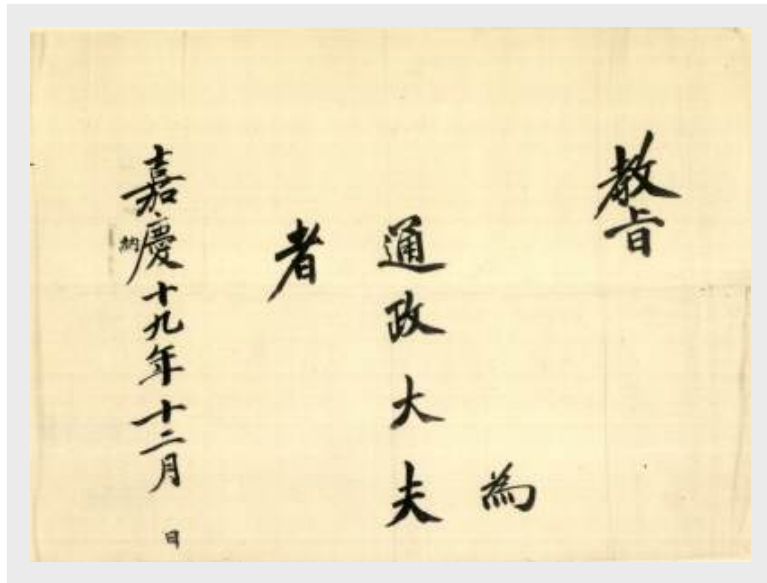 教旨
為
通政大夫
者
嘉慶十九年十二月 日
納